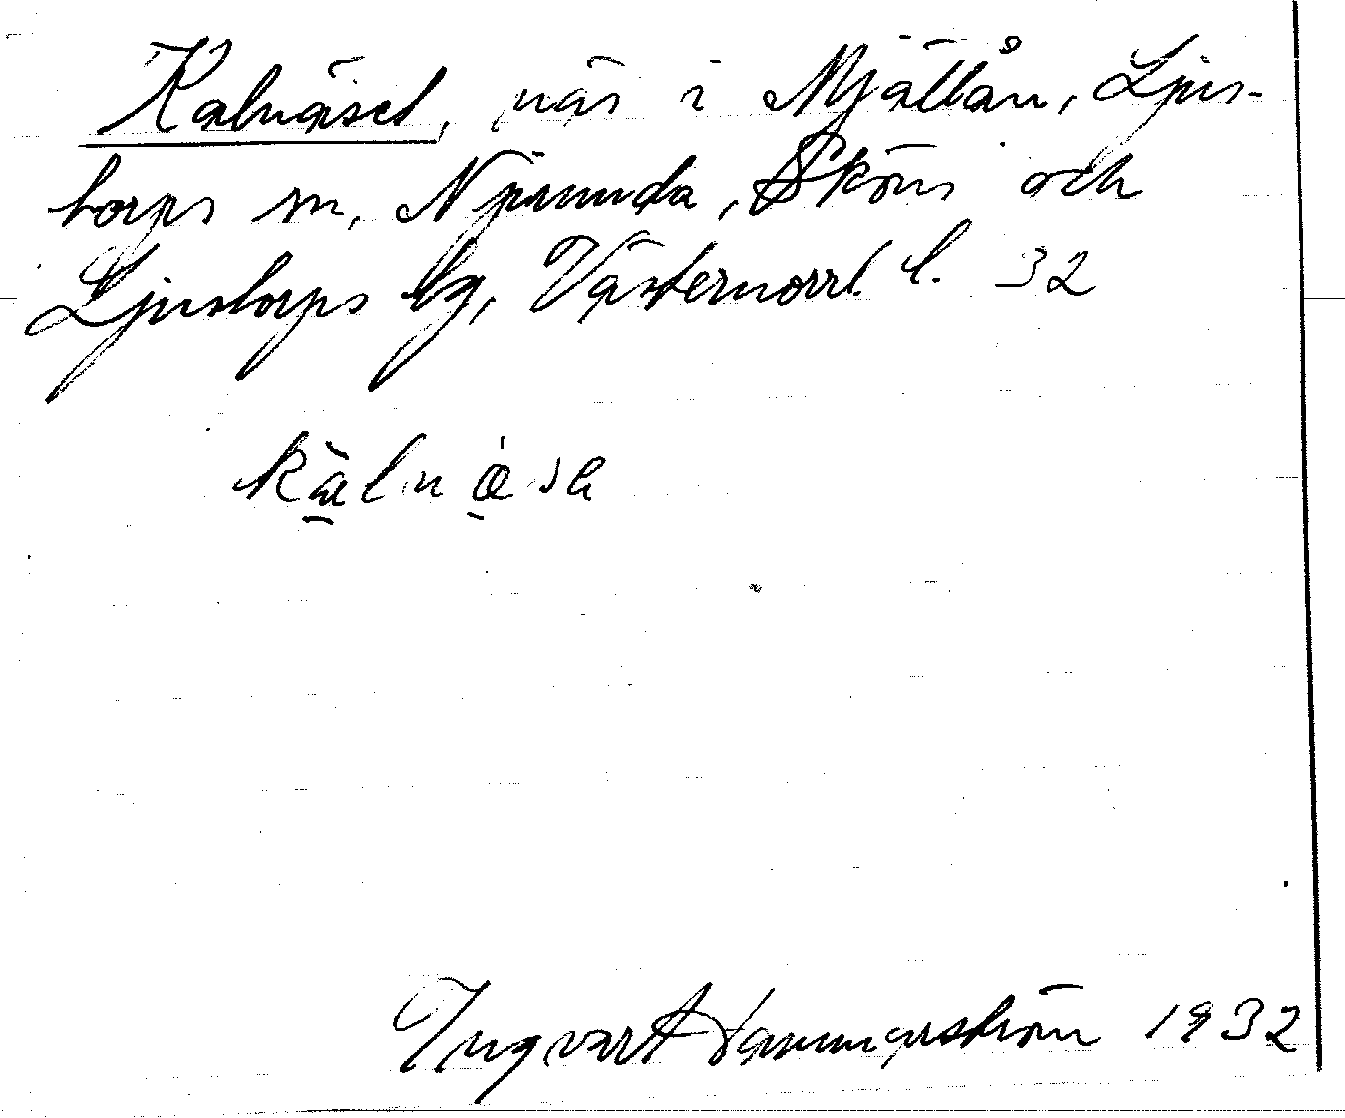 Kalnäset, näs i Mjällån, Ljus-
torps sn, Njurunda, Sköns och
Ljustorps tg, Västernorrl. l. 32
kälnäsa
Ingvar Hammarström 1932